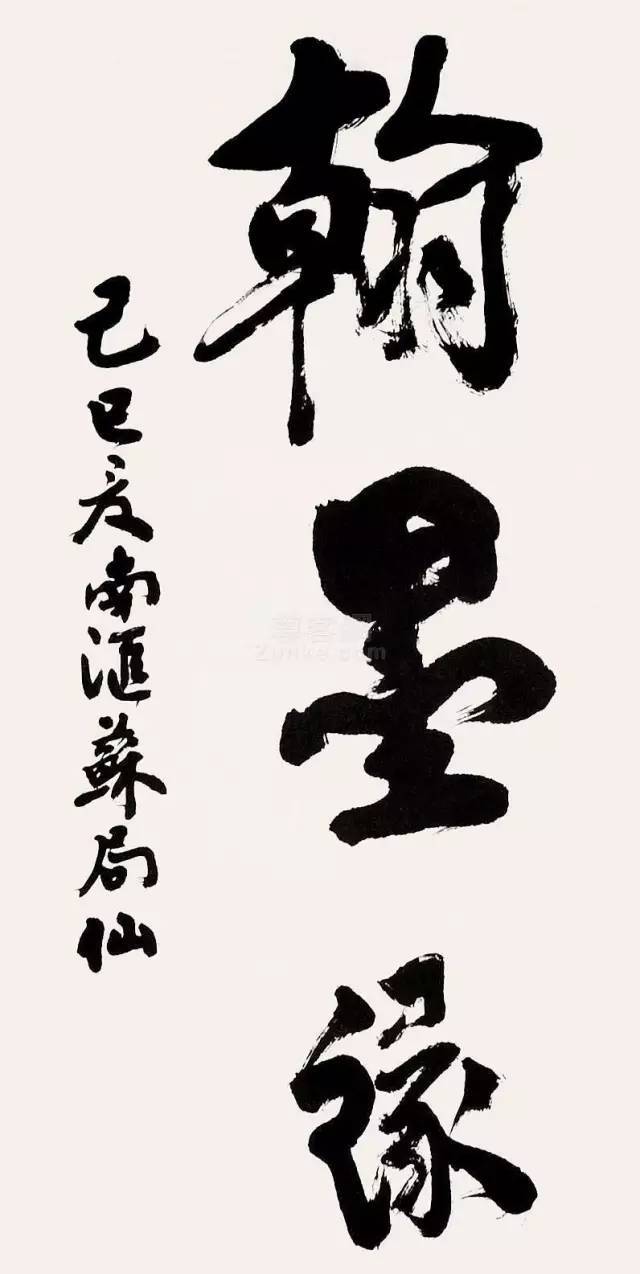 翰墨缘
己巳夏南滙蘇局仙
尊客網
Zunke.com